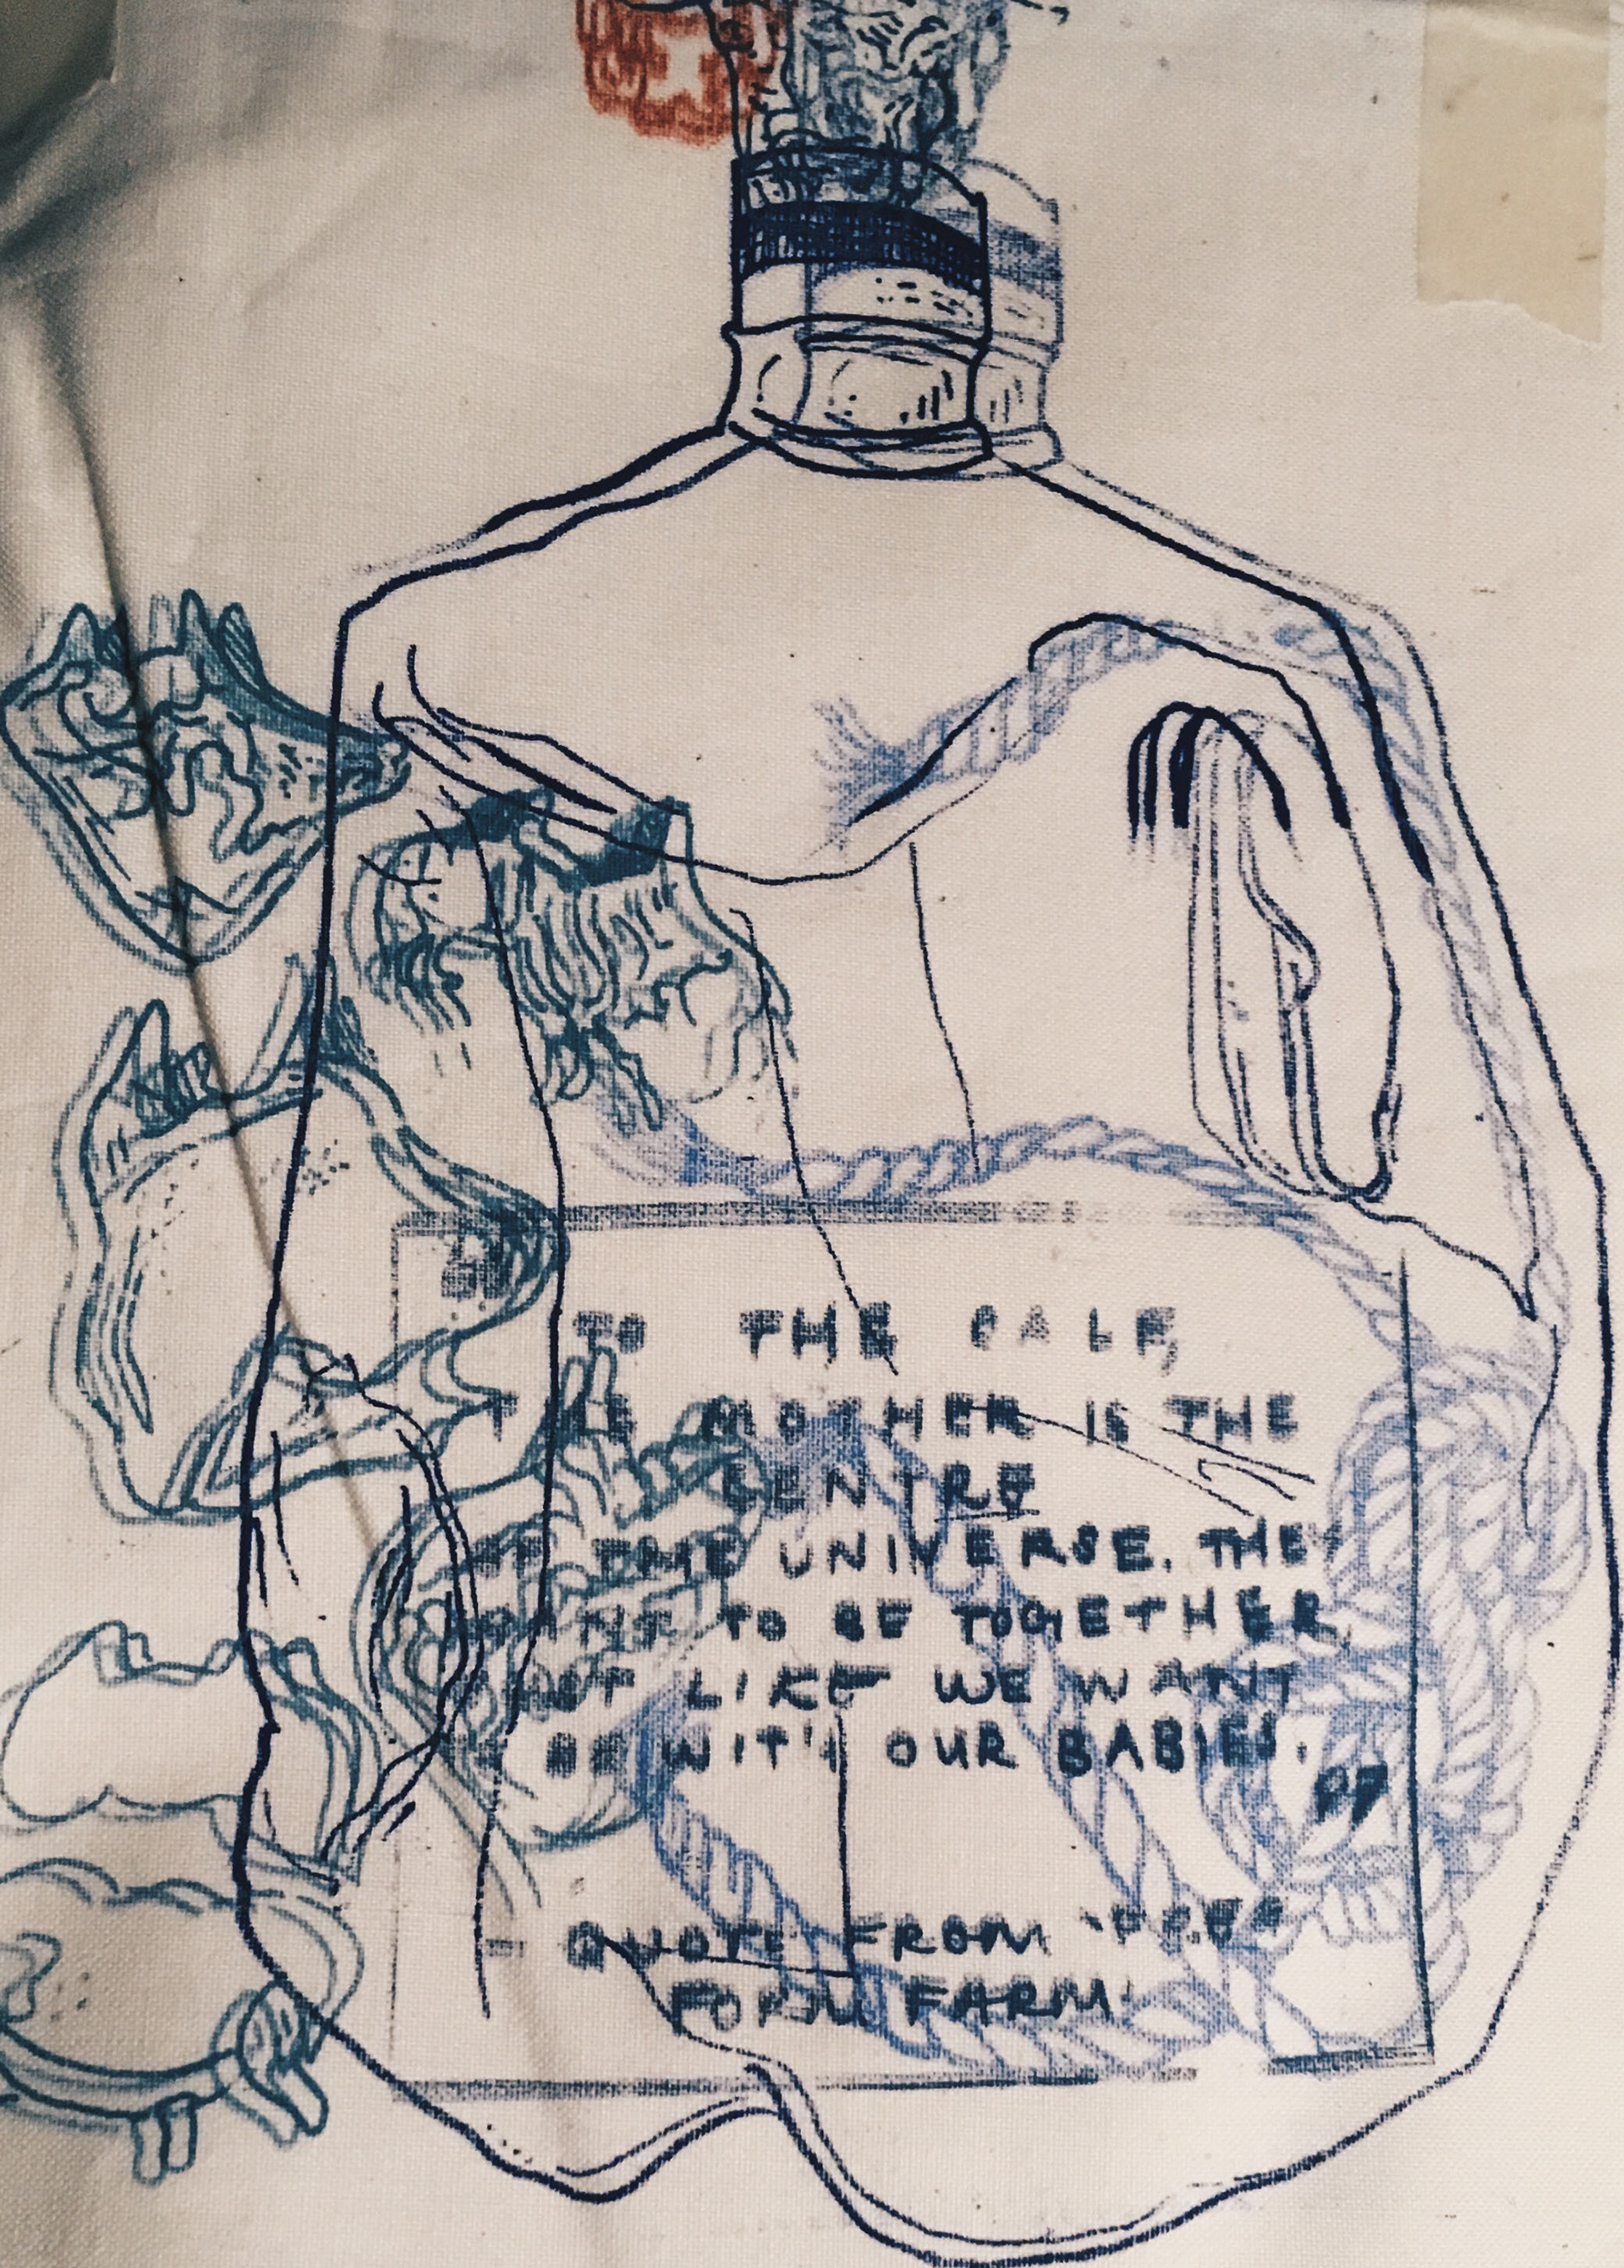 TO THE CALF,
THE MOTHER IS THE
CENTRE
OF THE UNIVERSE. THEY
WANT TO BE TOGETHER,
JUST LIKE WE WANT
BE WITH OUR BABIES.
QUOTE FROM 'FREE
FORM FARM'